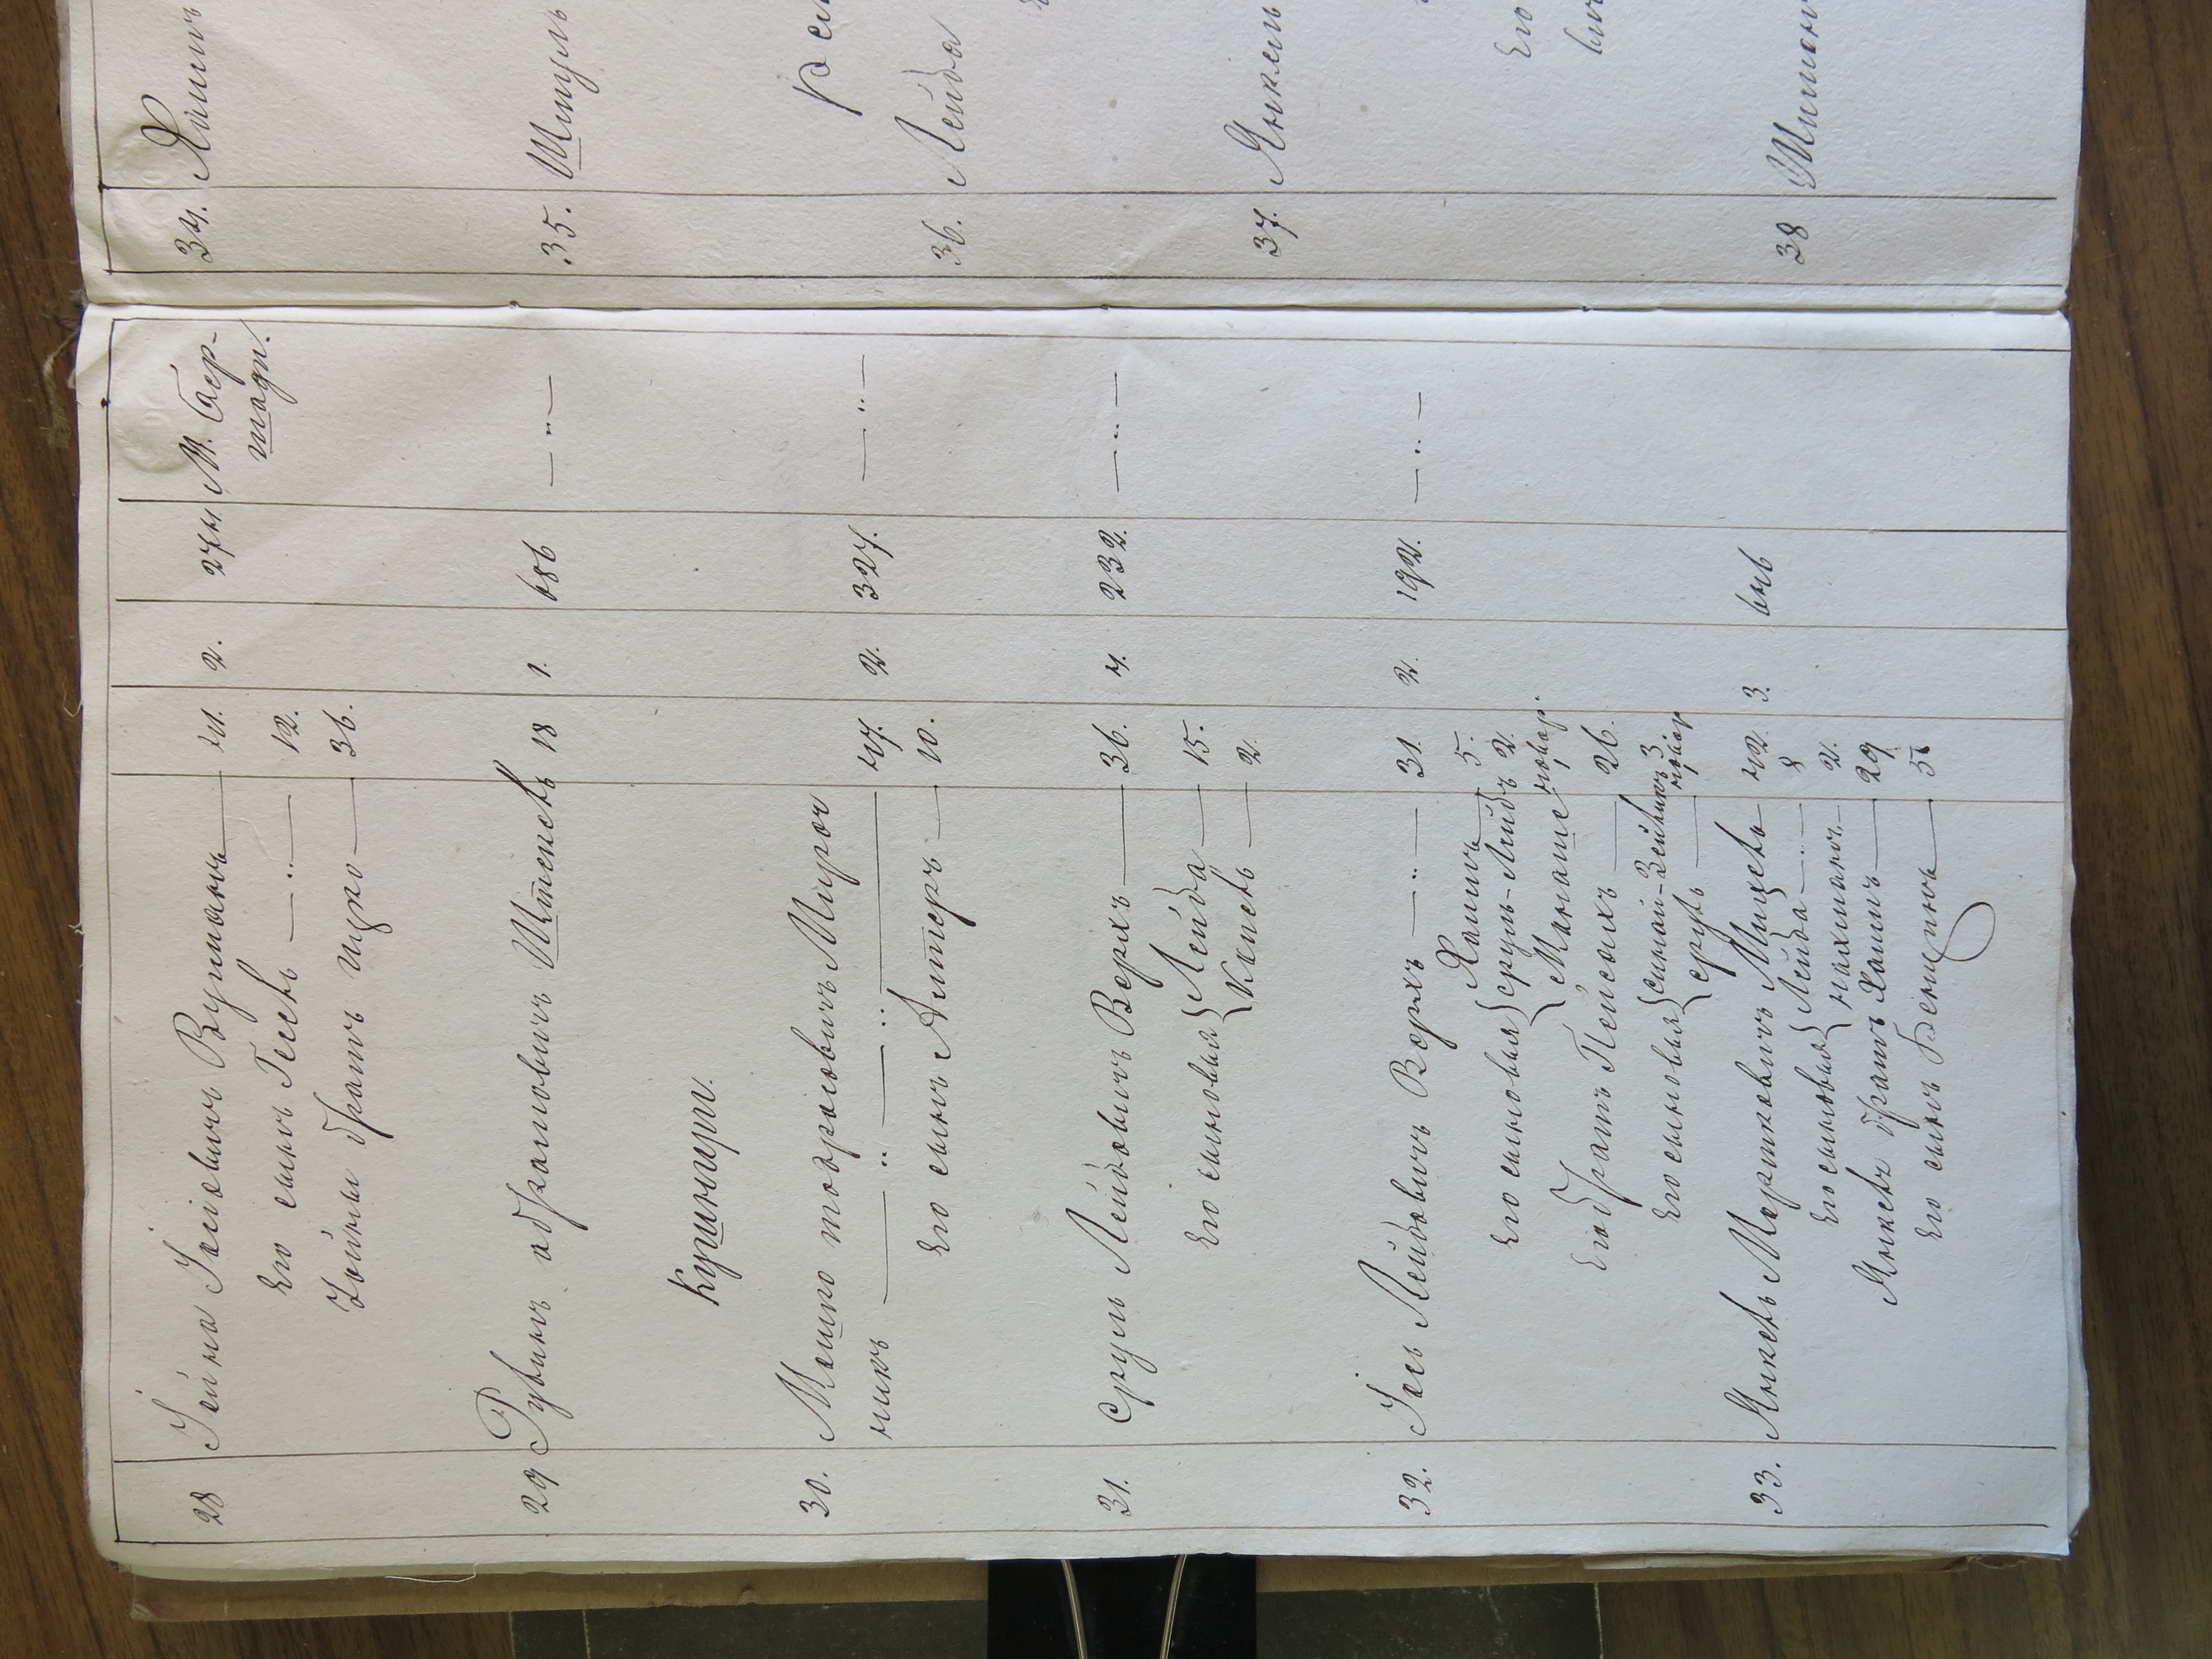 28 Іойна Іосіовичъ Вугманъ — 41. 2. 274 М. Бер-
шадь.
Его сынъ Гесель — „ — 12.
Іойны братъ Ицко — 36.
29 Рувинъ абрамовичъ Штепель 18 1. 686 — „ —
Кушниры.
30. Мошко тодросовичъ Мироч 47. 2. 327. — „ —
никъ — „ — „ —
Его сынъ Алтеръ — 10.
31. Сруль Лейбовичъ Ворхъ — 36. 4. 232. — „ —
Его сыновья { Лейба — 15.
Копель — 2.
32. Іось Лейбовичъ Ворхъ — „ — 31. 2. 192. — „ —
Хаимъ 5.
Его сыновья { сруль-Лейбъ 2.
Манаше
Его братъ Пейсахъ — 26.
Его сыновья { симхай-Зейликъ 3.
сруль —
33. Янкель Моршковичъ 42. 3. 646
Его сыновья { Лейба — „ — 8
нахманъ — 2.
Янкеля братъ Хаимъ — 29
Его сынъ Бенционъ — 5
34. Хаимъ
35. Шмуль
Рем
36. Лейба
37. Янкель
Его
38 Шимонъ